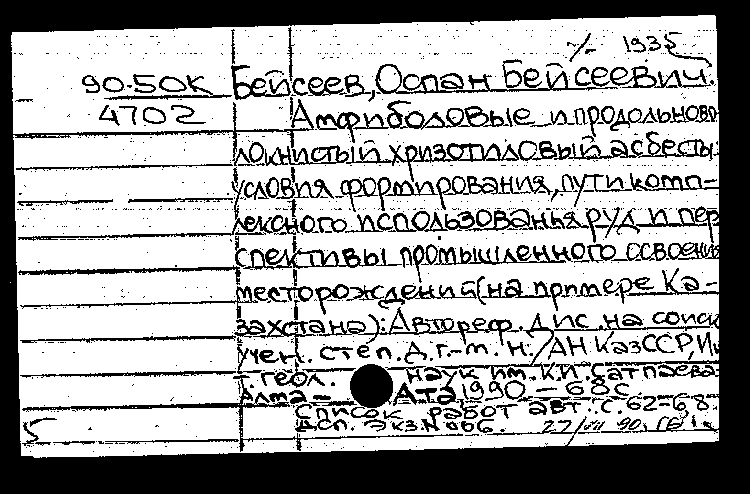 1935
90-50К Бейсеев, Оспан Бейсеевич.
4702 Амфиболовые и продольново
локнистый хризотиловый асбесты:
условия формирования, пути комп-
лексного использованья руд и пер
спективы промышленного освоения
месторождений (на примере Ка-
захстана): Автореф. дис. на соиск
учен. степ. д. г.-м. н. / АН КазССР, Ин
-т геол. наук им. К.И. Сатпаева.
Алма-Ата, 1990 — 68 с
Список работ авт.: с. 62-68.
5 Экз. N 066. 90.